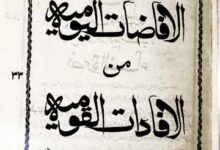 الافاضات اليومیه
من
الافادات القومیه